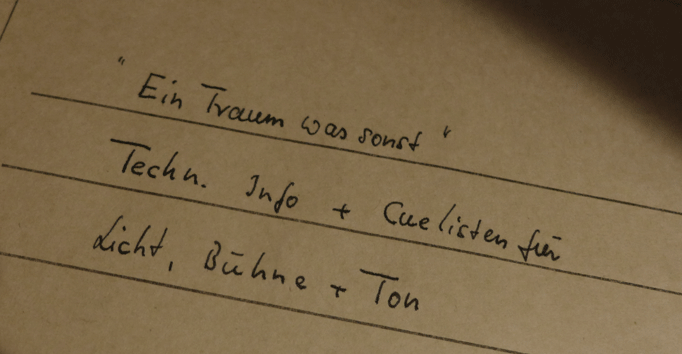 "Ein Traum was sonst"
Techn. Info + Cuelisten für
Licht, Bühne + Ton